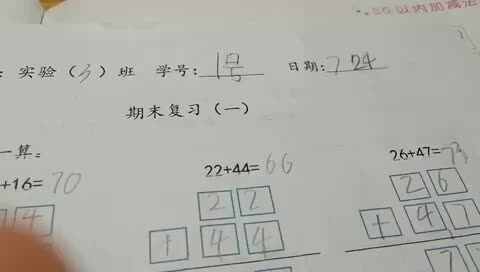 50以内加减法
实验（3）班 学号：1号 日期：7 24
期末复习（一）
一算。
+16=70 22+44=66 26+47=73
4 2 2 2 6
+ 4 4 + 4 7